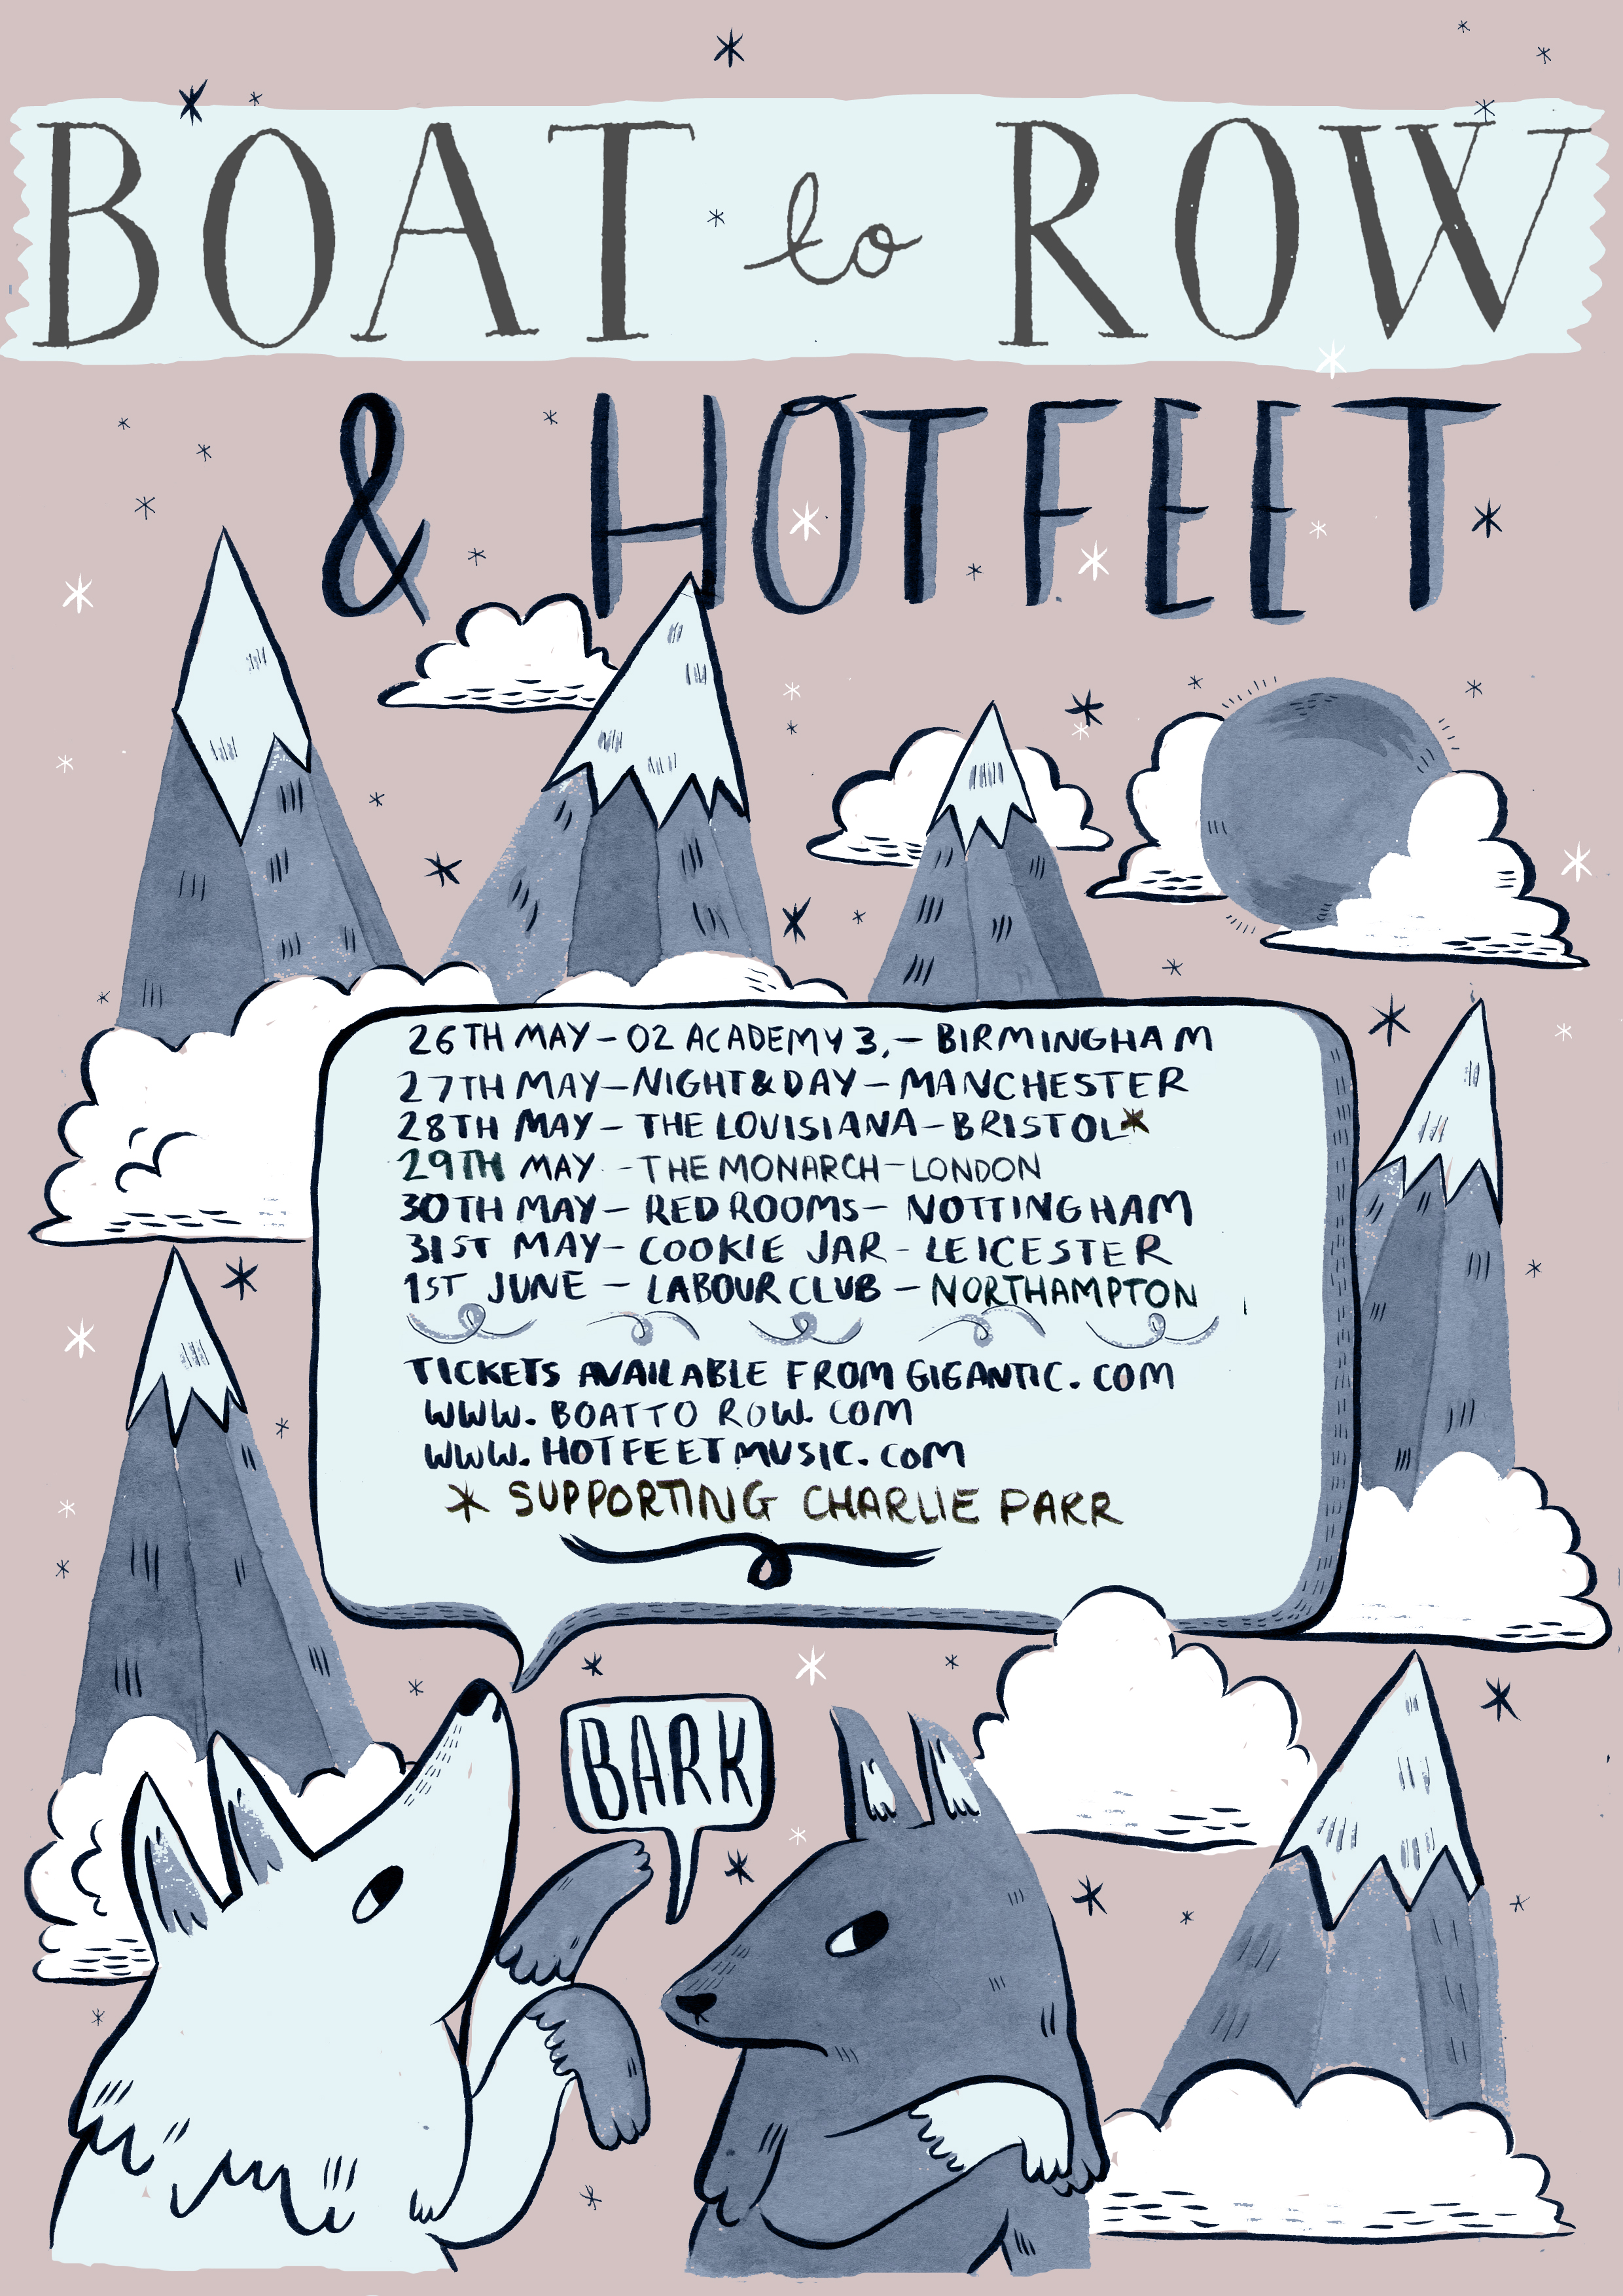 BOAT to ROW
& HOTFEET
26TH MAY - O2 ACADEMY 3, - BIRMINGHAM
27TH MAY - NIGHT & DAY - MANCHESTER
28TH MAY - THE LOUISIANA - BRISTOL*
29TH MAY - THE MONARCH - LONDON
30TH MAY - RED ROOMS - NOTTINGHAM
31ST MAY - COOKIE JAR - LEICESTER
1ST JUNE - LABOUR CLUB - NORTHAMPTON
TICKETS AVAILABLE FROM GIGANTIC.COM
WWW.BOATTOROW.COM
WWW.HOTFEETMUSIC.COM
* SUPPORTING CHARLIE PARR
BARK